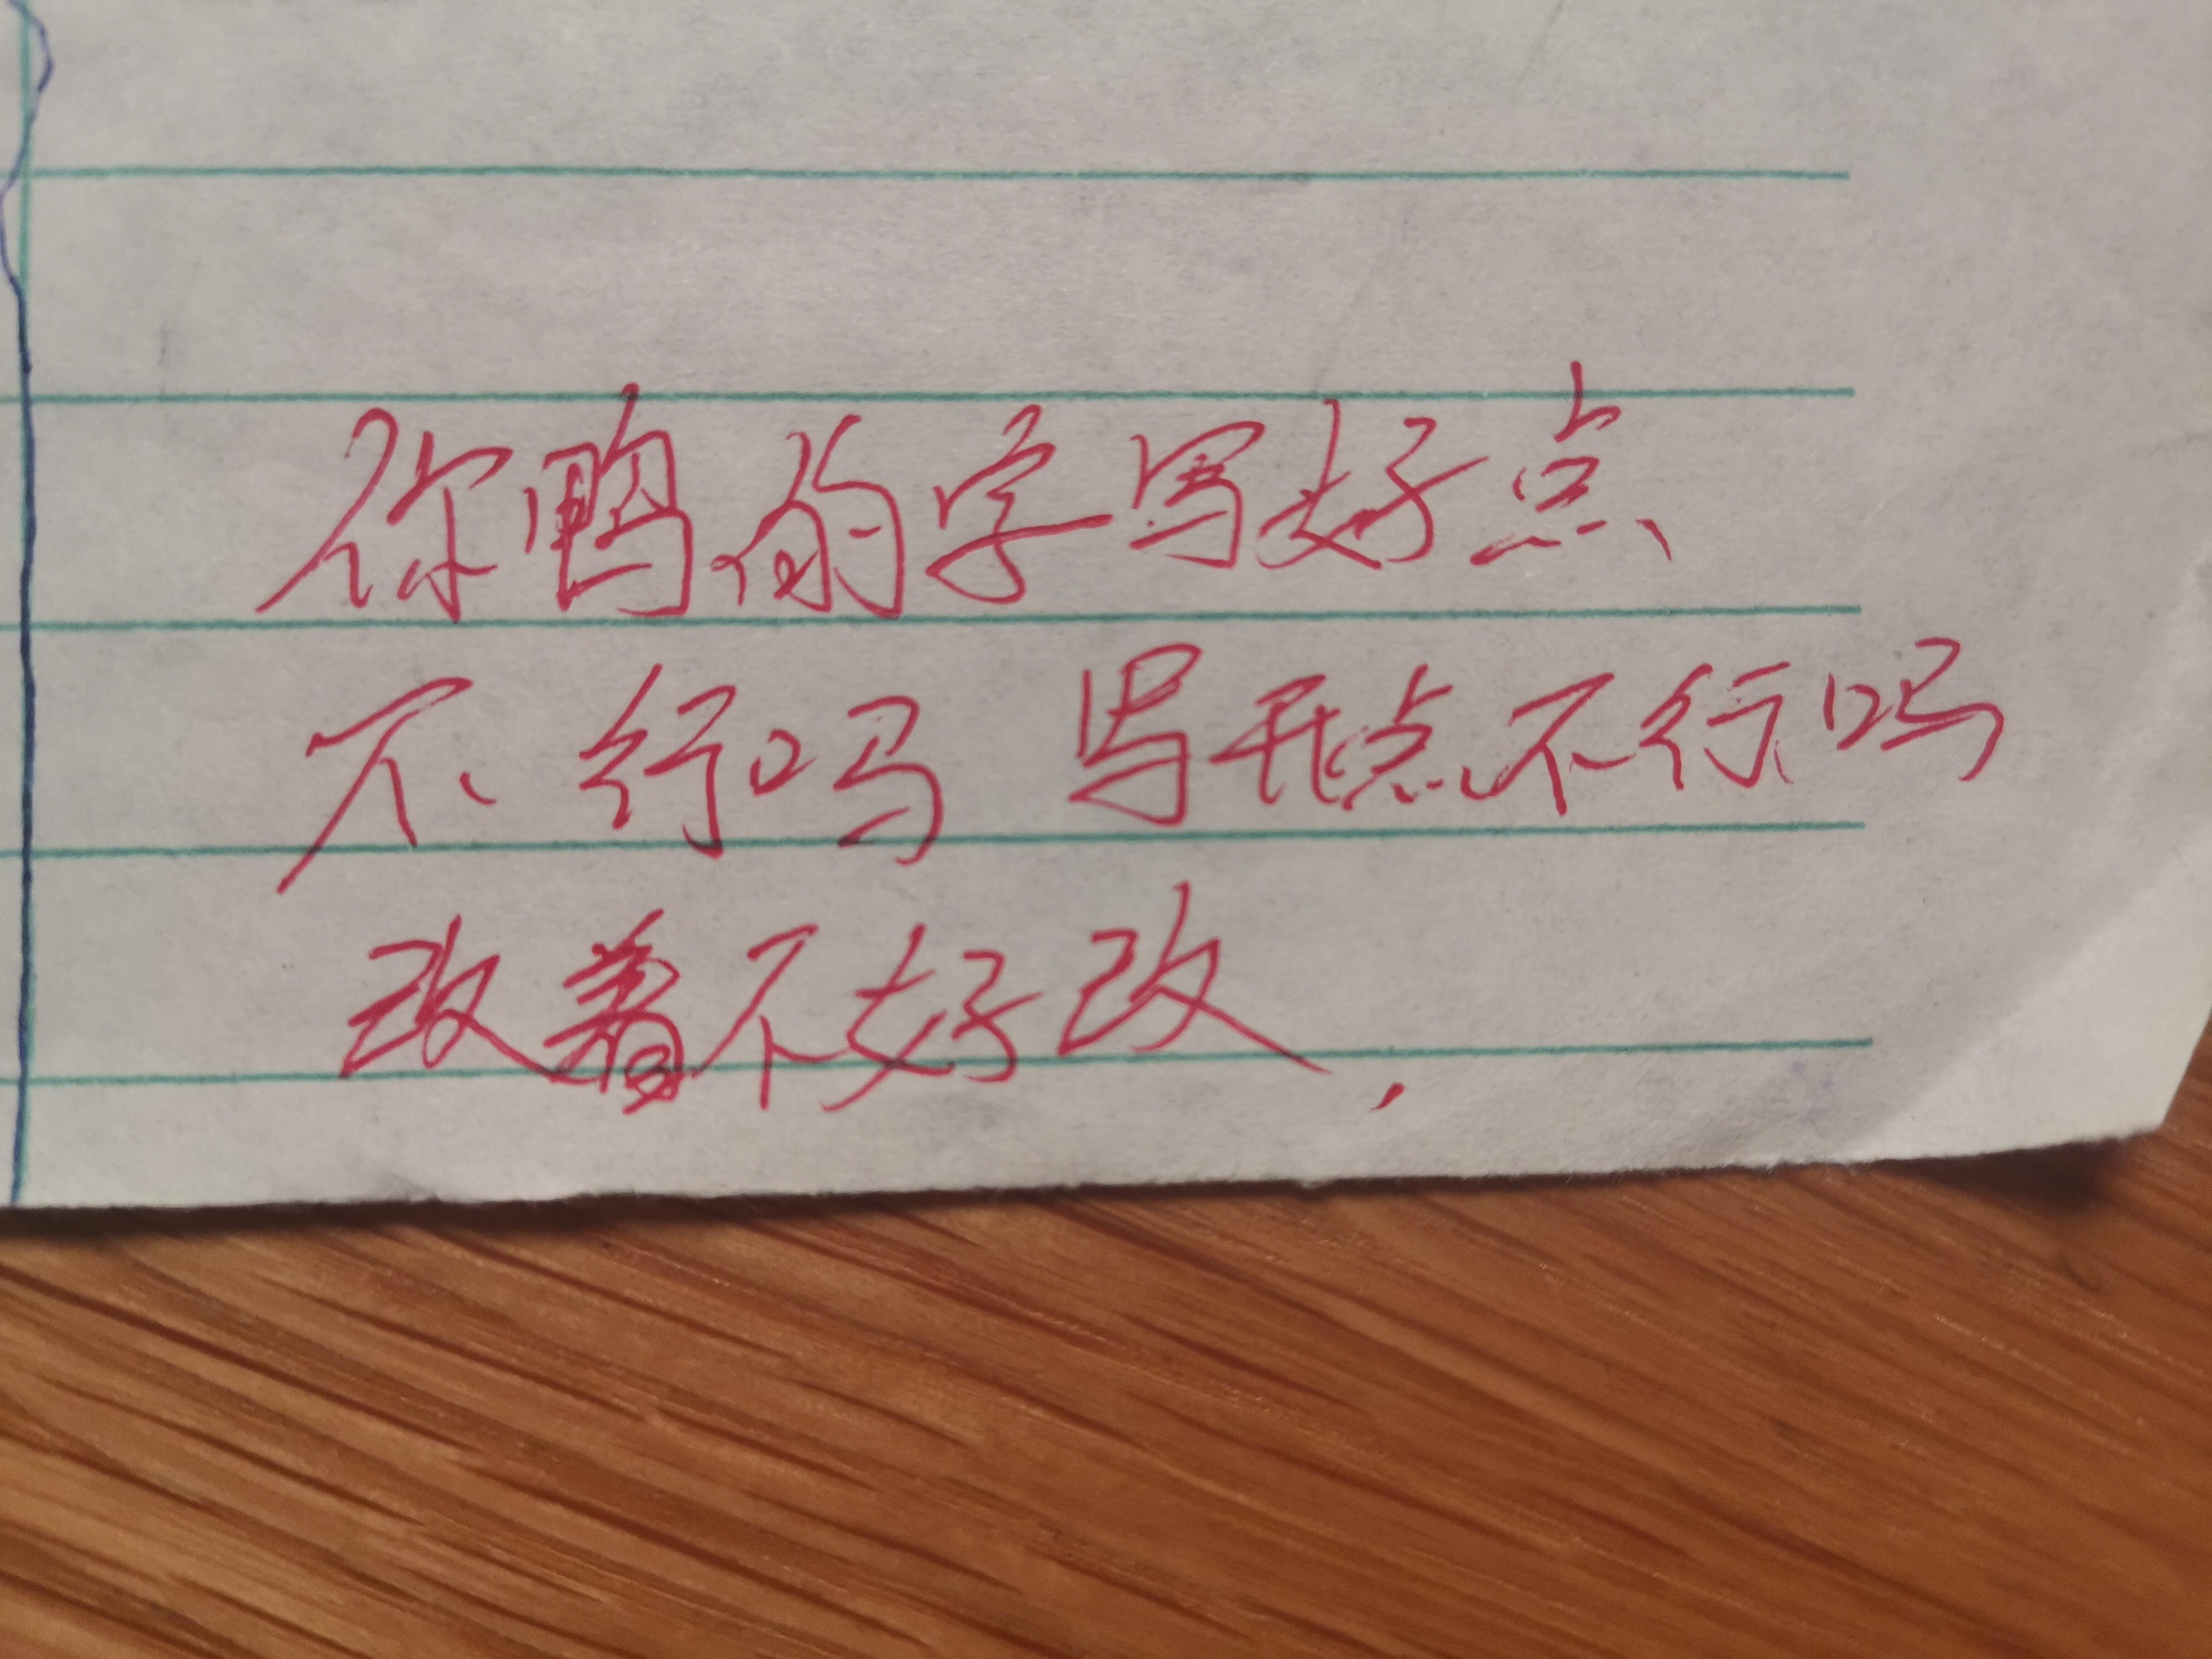 你鸭的字写好点
不行吗 写开点不行吗
改着不好改.